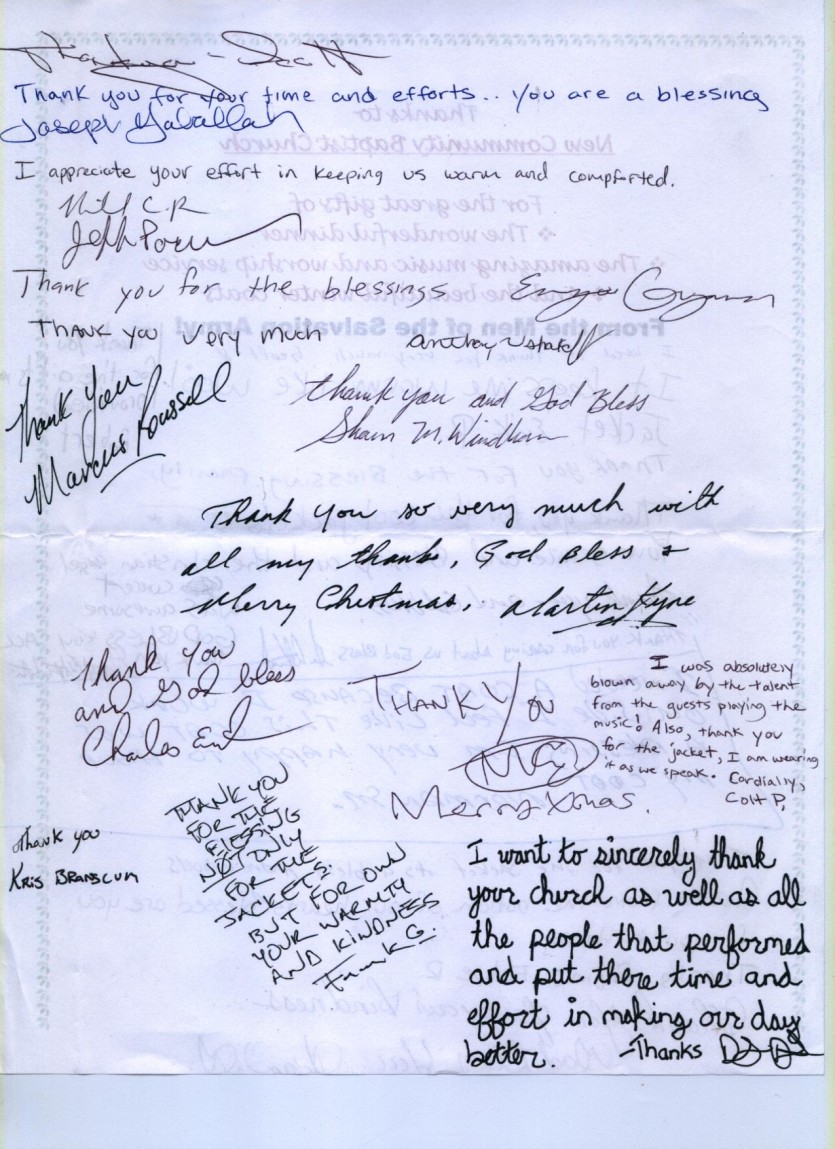 Thank you for your time and efforts.. you are a blessing
Joseph Gaballah
I appreciate your effort in keeping us warm and compforted.
Thank you for the blessings
Thank you very much
Anthony
Thank you
Marcus Roussell
Thank you and God Bless
Shawn M. Windham
Thank you so very much with
all my thanks, God Bless &
Merry Christmas, Martin Kyne
Thank you
and God bless
Charles
Thank You
Merry Xmas.
I was absolutely
blown away by the talent
from the guests playing the
music! Also, thank you
for the jacket, I am wearing
it as we speak. Cordially,
Colt P.
Thank you
Kris Branscum
THANK YOU
FOR THE
BLESSING
NOT ONLY
FOR THE
JACKETS
BUT FOR OWN
YOUR WARMTY
AND KINDNESS
Frank G.
I want to sincerely thank
your church as well as all
the people that performed
and put there time and
effort in making our day
better. -Thanks